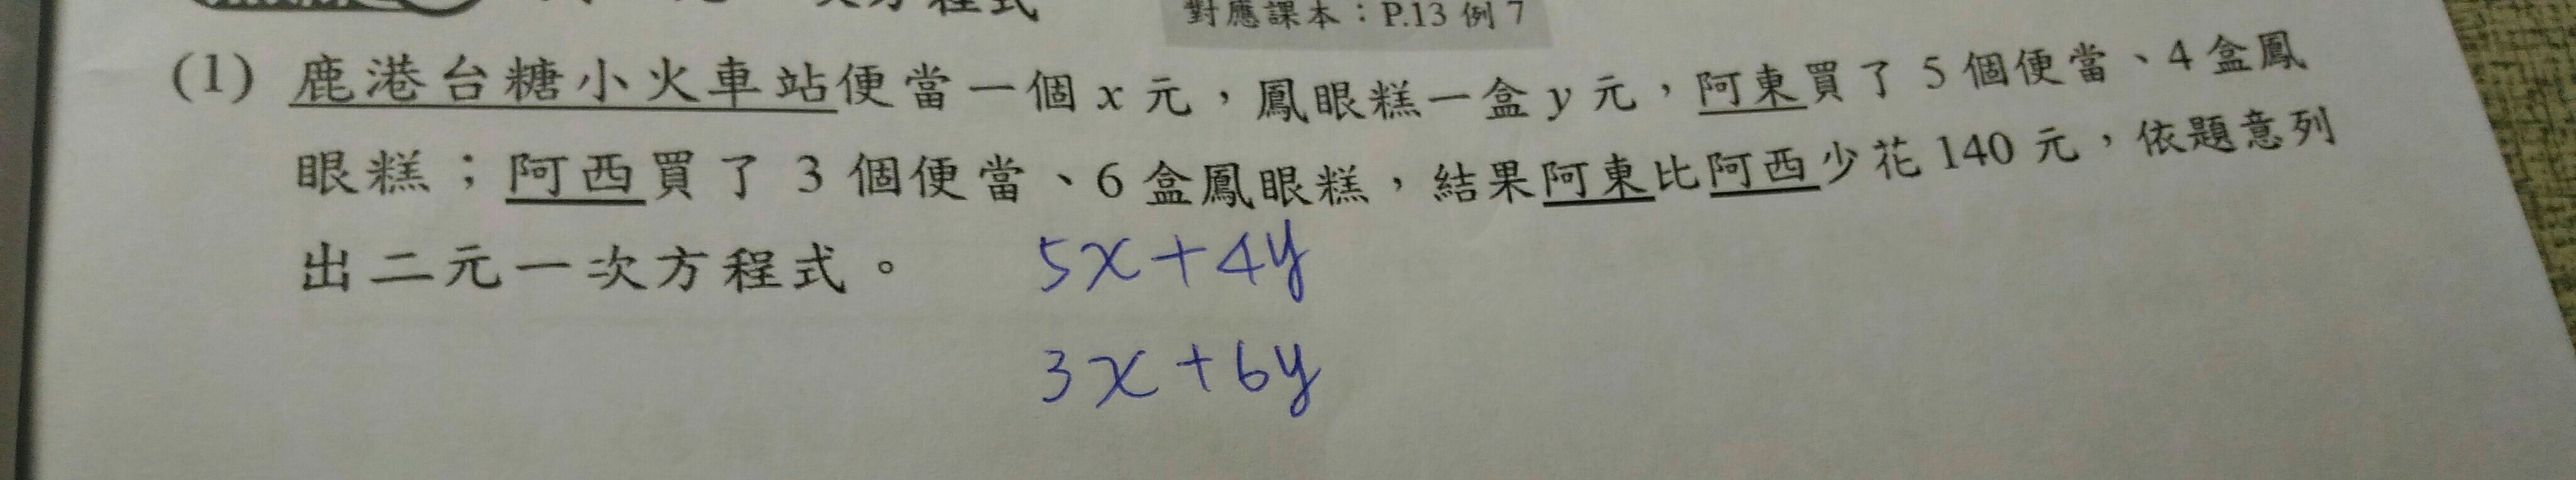 次方程式
對應課本：P.13 例 7
(1) 鹿港台糖小火車站便當一個 x 元，鳳眼糕一盒 y 元，阿東買了 5 個便當、4 盒鳳
眼糕；阿西買了 3 個便當、6 盒鳳眼糕，結果阿東比阿西少花 140 元，依題意列
出二元一次方程式。
5x+4y
3x+6y